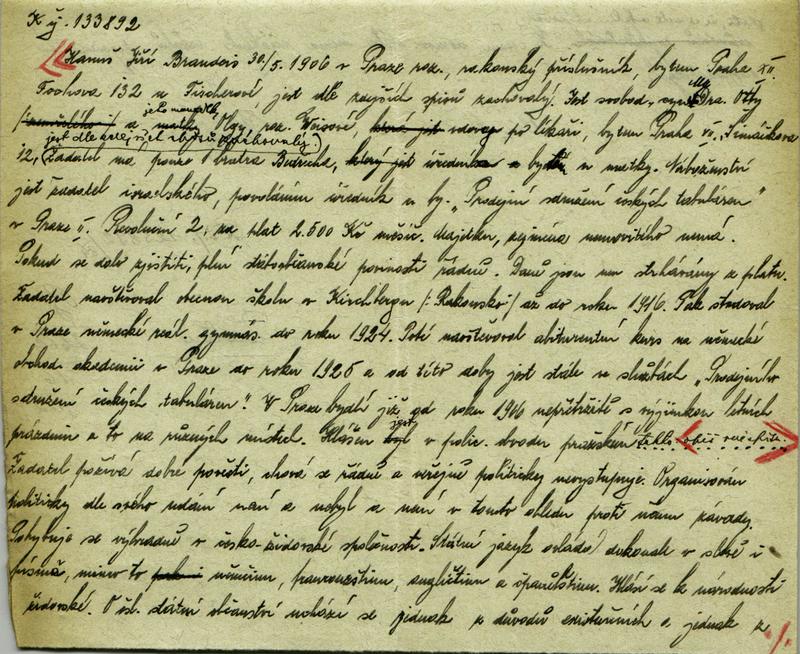 K čj. 133892
Hanuš Jiří Brandeis 30/5. 1906 v Praze nar., rakouský příslušník, bytem Praha XII.
Fochova 132 u Fischerové, jest dle zdejších spisů zachovalý. Jest svobod. syn MU Dra. Otty
a jeho manželky Olgy roz. Weisové, která jest vdovou po lékaři, bytem Praha VII., Šimáčkova
jest dle zdej.
12, Žadatel má pouze bratra Bedřicha, který jest úředníka a bytem u matky. Náboženství
jest žadatel israelského, povoláním úředník u by. „Prodejní sdružení českých tabuláren"
v Praze II. Revoluční 2, za plat 2.500 Kč měsíč. Majetku, zejména nemovitého nemá.
Pokud se dalo zjistiti, plní státoobčanské povinosti řádně. Daně jsou mu strhávány z platu.
Žadatel navštěvoval obecnou školu v Kirchbergu /: Rakousko :/ až do roku 1916. Pak studoval
v Praze německé reál. gymnas. do roku 1924. Poté navštěvoval abiturientní kurs na německé
obchod. akademii v Praze do roku 1925 a od této doby jest stále ve službách „Prodejního
sdružení českých tabuláren". V Praze bydlí již od roku 1906 nepřetržitě s výjimkou letních
prázdnin a to na různých místech. Hlášen jest v polic. obvodu pražském
Žadatel požívá dobré pověsti, chová se řádně a veřejně politicky nevystupuje. Organisován
politicky dle svého udání není a nebyl a není v tomto ohledu proti němu závady.
Pohybuje se výhradně v česko-židovské společnosti. Státní jazyk ovládá dokonale v slově i
písmě, mimo to němčinu, francouzštinu, angličtinu a španělštinu. Hlásí se k národnosti
židovské. O čsl. státní občanství uchází se jednak z důvodů existenčních a jednak z
./.